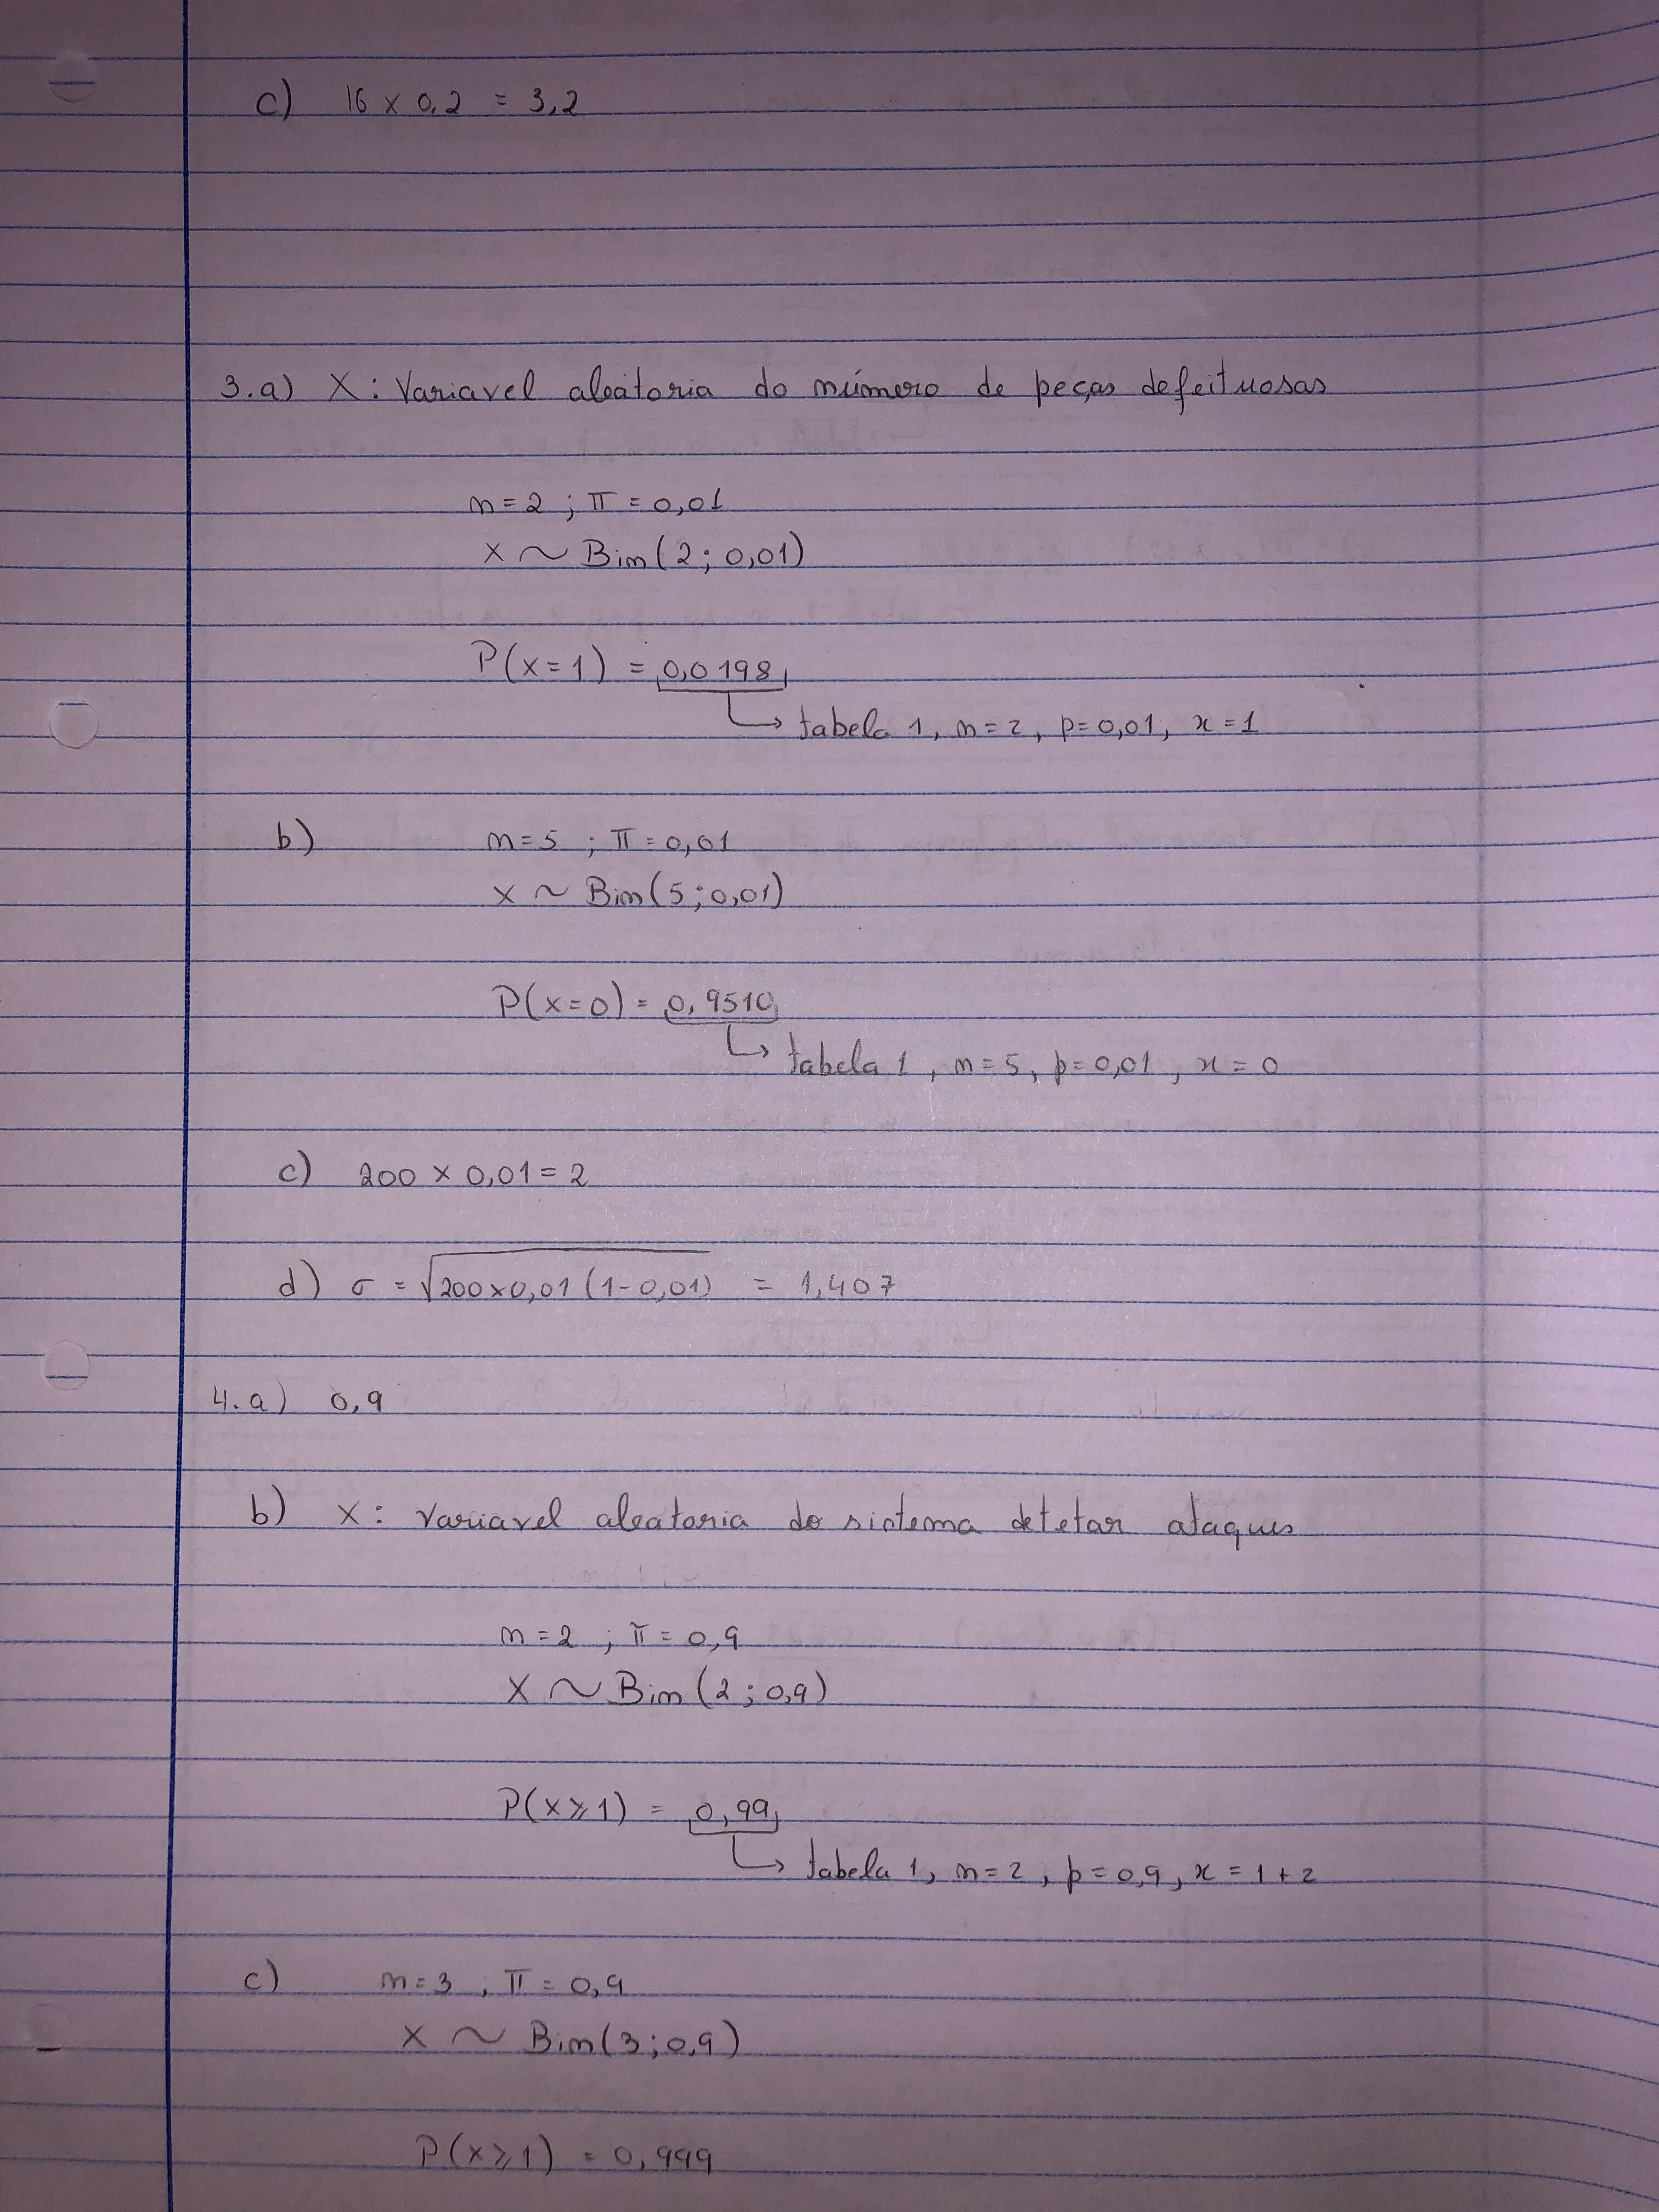 c) 16 x 0,2 = 3,2
3.a) X: Variavel aleatoria do número de peças defeituosas
n=2 ; π=0,01
X ~ Bin(2; 0,01)
P(x=1) = 0,0198
↳ tabela 1, n=2, p=0,01, x=1
b) n=5 ; π=0,01
X ~ Bin(5; 0,01)
P(x=0) = 0,9510
↳ tabela 1, n=5, p=0,01, x=0
c) 200 x 0,01 = 2
d) σ = √200x0,01 (1-0,01) = 1,407
4.a) 0,9
b) X: Variavel aleatoria do sistema detetar ataques
n=2 ; π=0,9
X ~ Bin(2; 0,9)
P(x⩾1) = 0,99
↳ tabela 1, n=2, p=0,9, x=1+2
c) n=3 , π=0,9
X ~ Bin(3; 0,9)
P(x⩾1) = 0,999